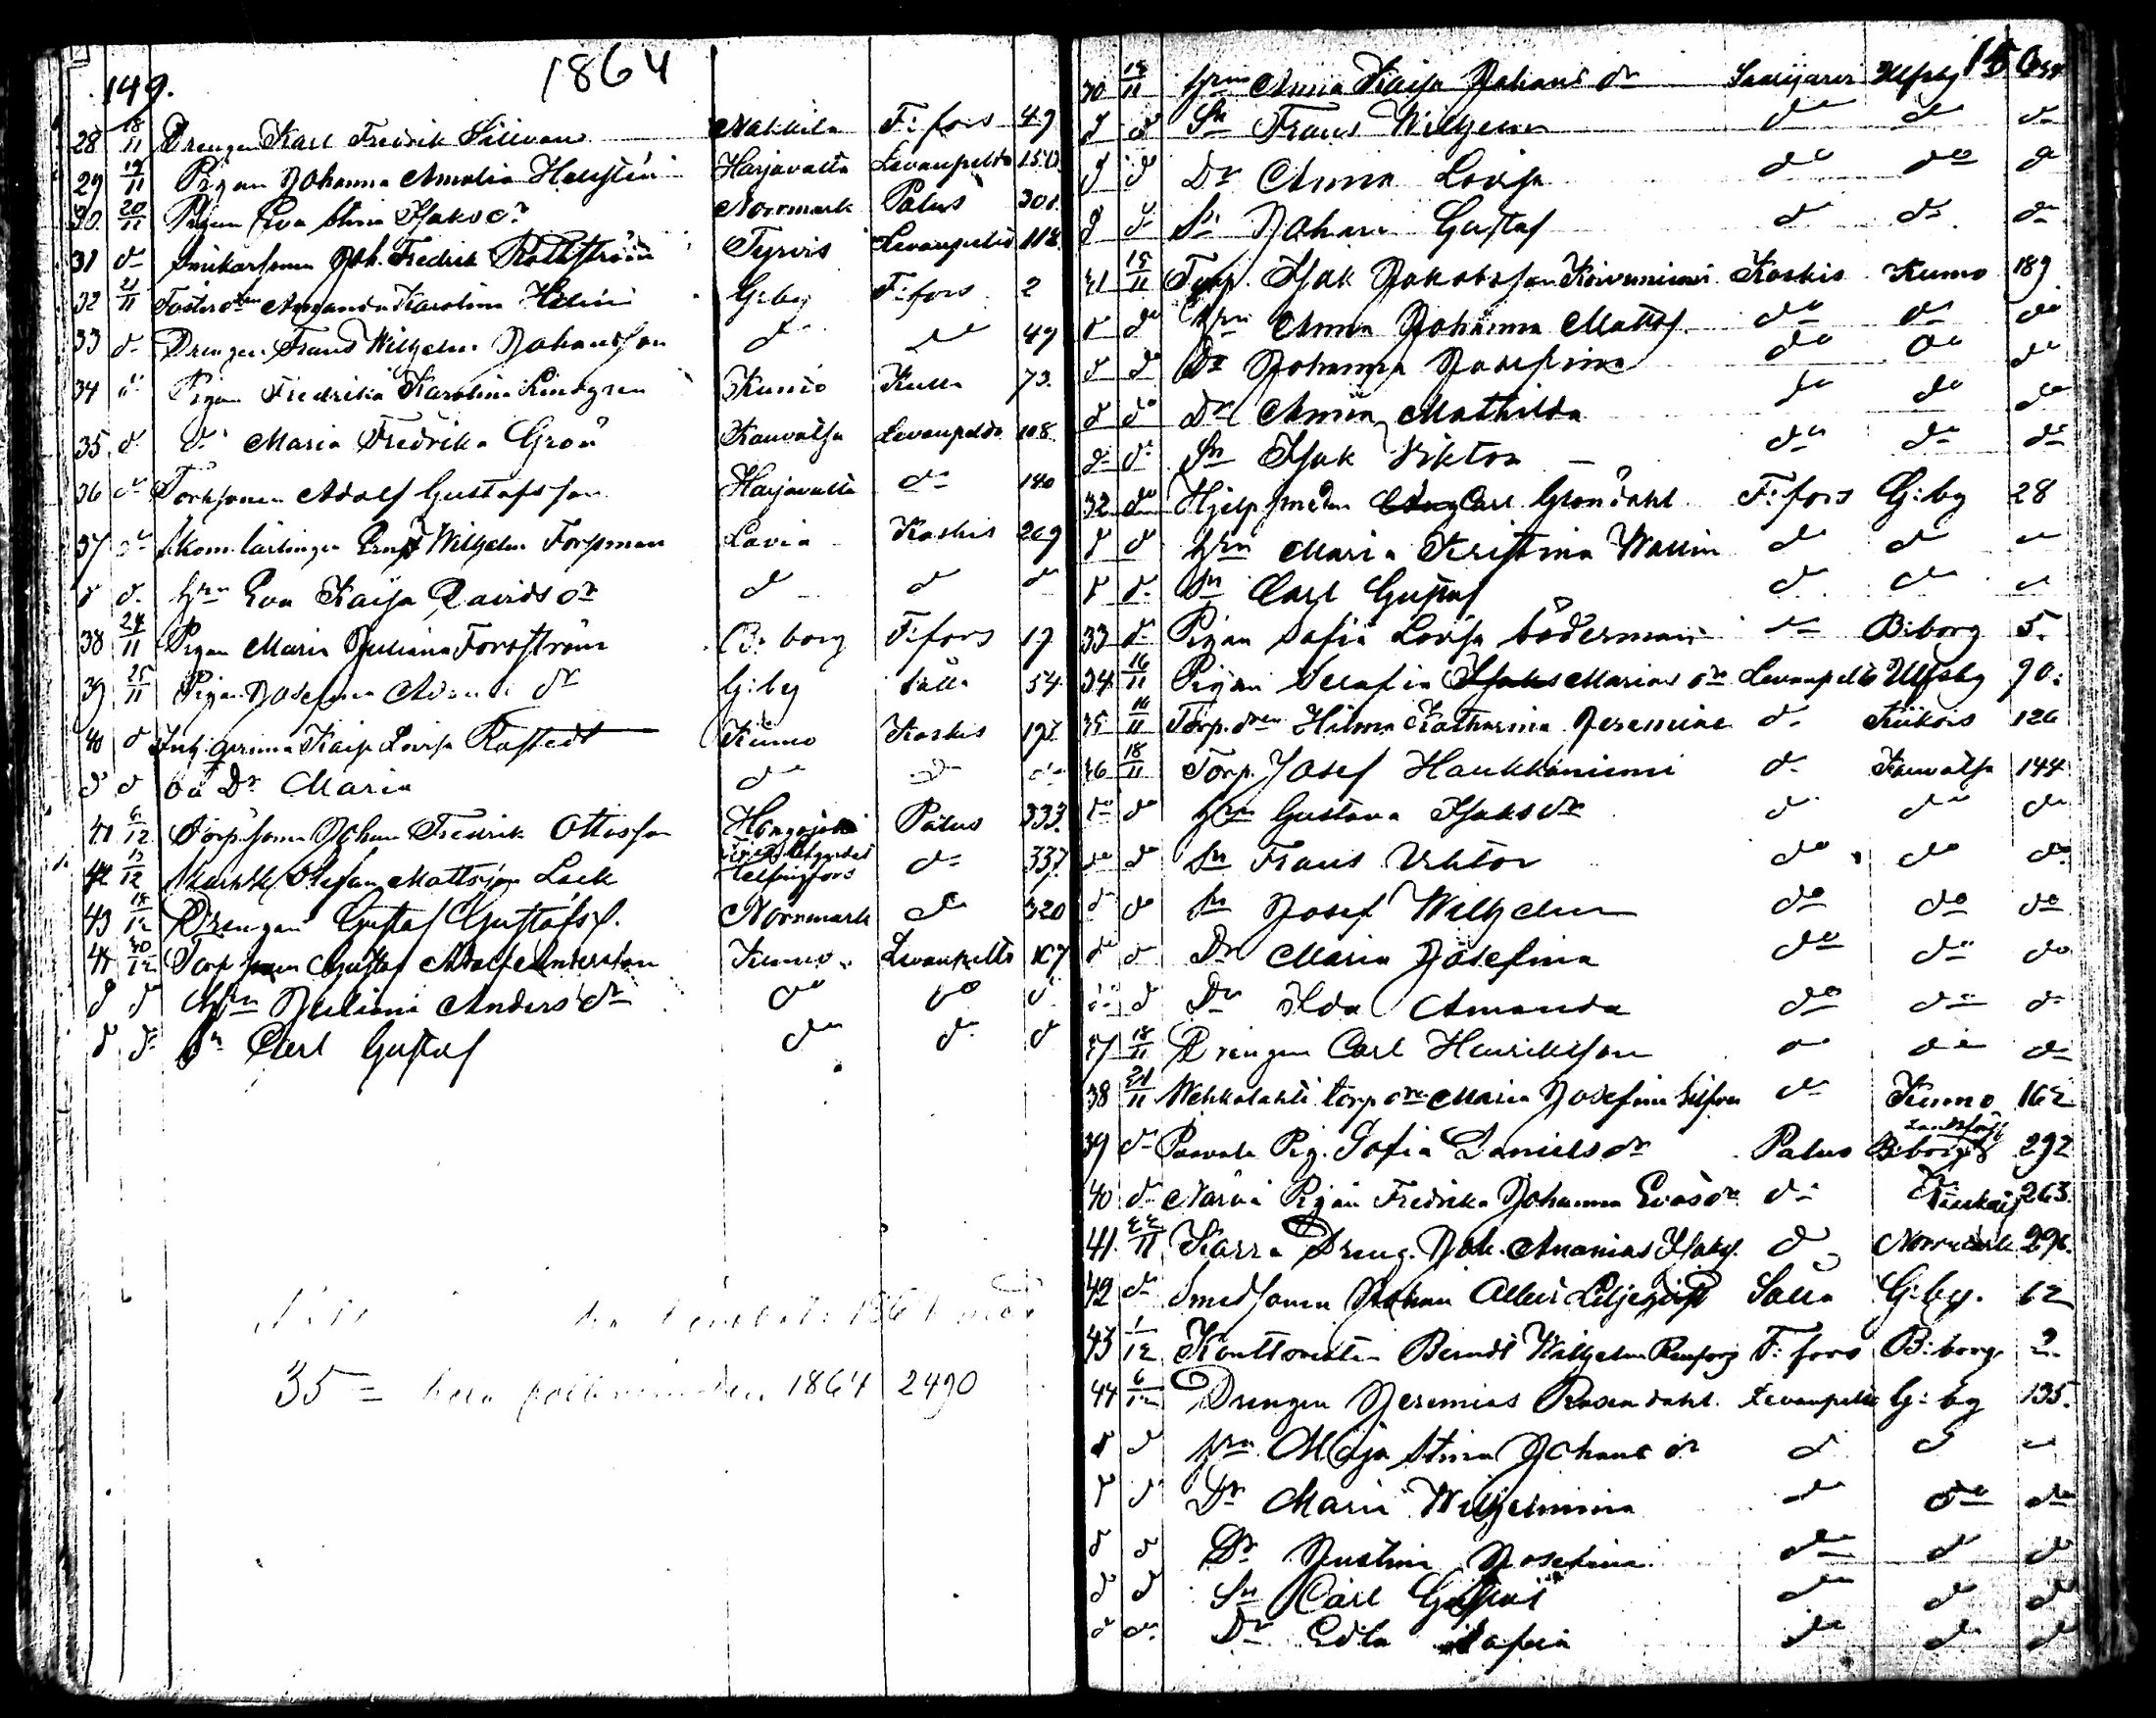 149.
1864
28 18/11 Drengen Karl Fredrik Sillman Nakkila F:fors 49
29 19/11 Pigan Johanna Amalia Hellstén Harjavalta Levanpelto 150
30. 20/11 Pigan Eva Stina Isaksdr Norrmark Palus 301.
31 do Joh. Fredrik Tyrvis Levanpelto 118
32 21/11 Fosterdtrn Amanda Karolina Helin G:by F:fors 2
33 do Drengen Frans Wilhelm Johansson do do 49
34 do Pigan Fredrika Karolina Lindgren Kumo Kulla 73.
35 do do Maria Fredrika Grön Kauvatsa Levanpelto 108
36 do Torpsonen Adolf Gustafsson Harjavalta do 140
37 do Skom. lärlingen Ernst Wilhelm Forsman Lavia Koskis 209
do do Hrn Eva Kaisa Davidsdr do do do
38 24/11 Pigan Maria Juliana Forsström B:borg F:fors 17
39 25/11 Pigan Josefina dr G:by Salla 54
40 do Kaisa Lovisa Rastedt Kumo Koskis
do do oä Dr Maria do do do
41 6/12 Torpsonen Johan Fredrik Ottosson Hongojoki Palus 333.
42 /12 Stefan Mattsson Lack Helsingfors do 337
43 18/12 Drengen Gustaf Gustafss. Norrmark do 320
44 30/12 Torp Gustaf Adolf Andersson Kumo Levanpelto 107
do do Hrn Juliana Andersdr do do do
do do Sn Carl Gustaf do do do
35 = hela 1864 2490
150
30 15/11 Hrn Anna Kaisa Johansdr Ulfsby
do do Sn Frans Wilhelm do do do
do do Dr Anna Lovisa do do do
do do Sn Johan Gustaf do do do
31 15/11 Torp. Isak Jakobsson Koivuniemi Koskis Kumo 189
do do Hrn Anna Johanna Mattsd. do do do
do do Dr Johanna Josefina do do do
do do Dr Anna Mathilda do do do
do do Sn Isak Viktor do do do
32 do Hjelpsmeden Carl Gröndahl F:fors G:by 28
do do Hrn Maria Kristina Wallin do do do
do do Sn Carl Gustaf do do do
33 do Pigan Sofia Lovisa Söderman do B:borg 5.
34 16/11 Pigan Serafia Mariasdr Levanpelto Ulfsby 90.
35 16/11 Torp.dren Hilma Katharina Jeremiae do Kiikois 126
36 18/11 Torp. Josef Haukkaniemi do Kauvatsa 144
do do Hrn Gustava Isaksdr do do do
do do Sn Frans Viktor do do do
do do Sn Josef Wilhelm do do do
do do Dr Maria Josefina do do do
do do Dr Ida Amanda do do do
37 18/11 Drengen Carl Henriksson do do do
38 21/11 torpdrn Maria Josefina do Kumo 162
39 do Pig. Sofia Danielsdr Palus B:borgs landsförs 292
40 do Pigan Fredrika Johanna Evasdr do 263.
41. 22/11 Karra Dreng. Joh. Ananias Isaks. do Norrmark 296.
42 do Smedsonen Johan Albert Liljeqvist Salla G:by. 62
43 1/12 Konttoristen Berndt Wilhelm Renfors F:fors B:borg 2.
44 6/12 Drengen Jeremias Rosendahl. Levanpelto G:by 135.
do do Hrn Maja Stina Johansdr do do do
do do Dr Maria Wilhelmina do do do
do do Dr Justina Josefina do do do
do do Sn Carl Gustaf do do do
do do Dr Edla Sofia do do do